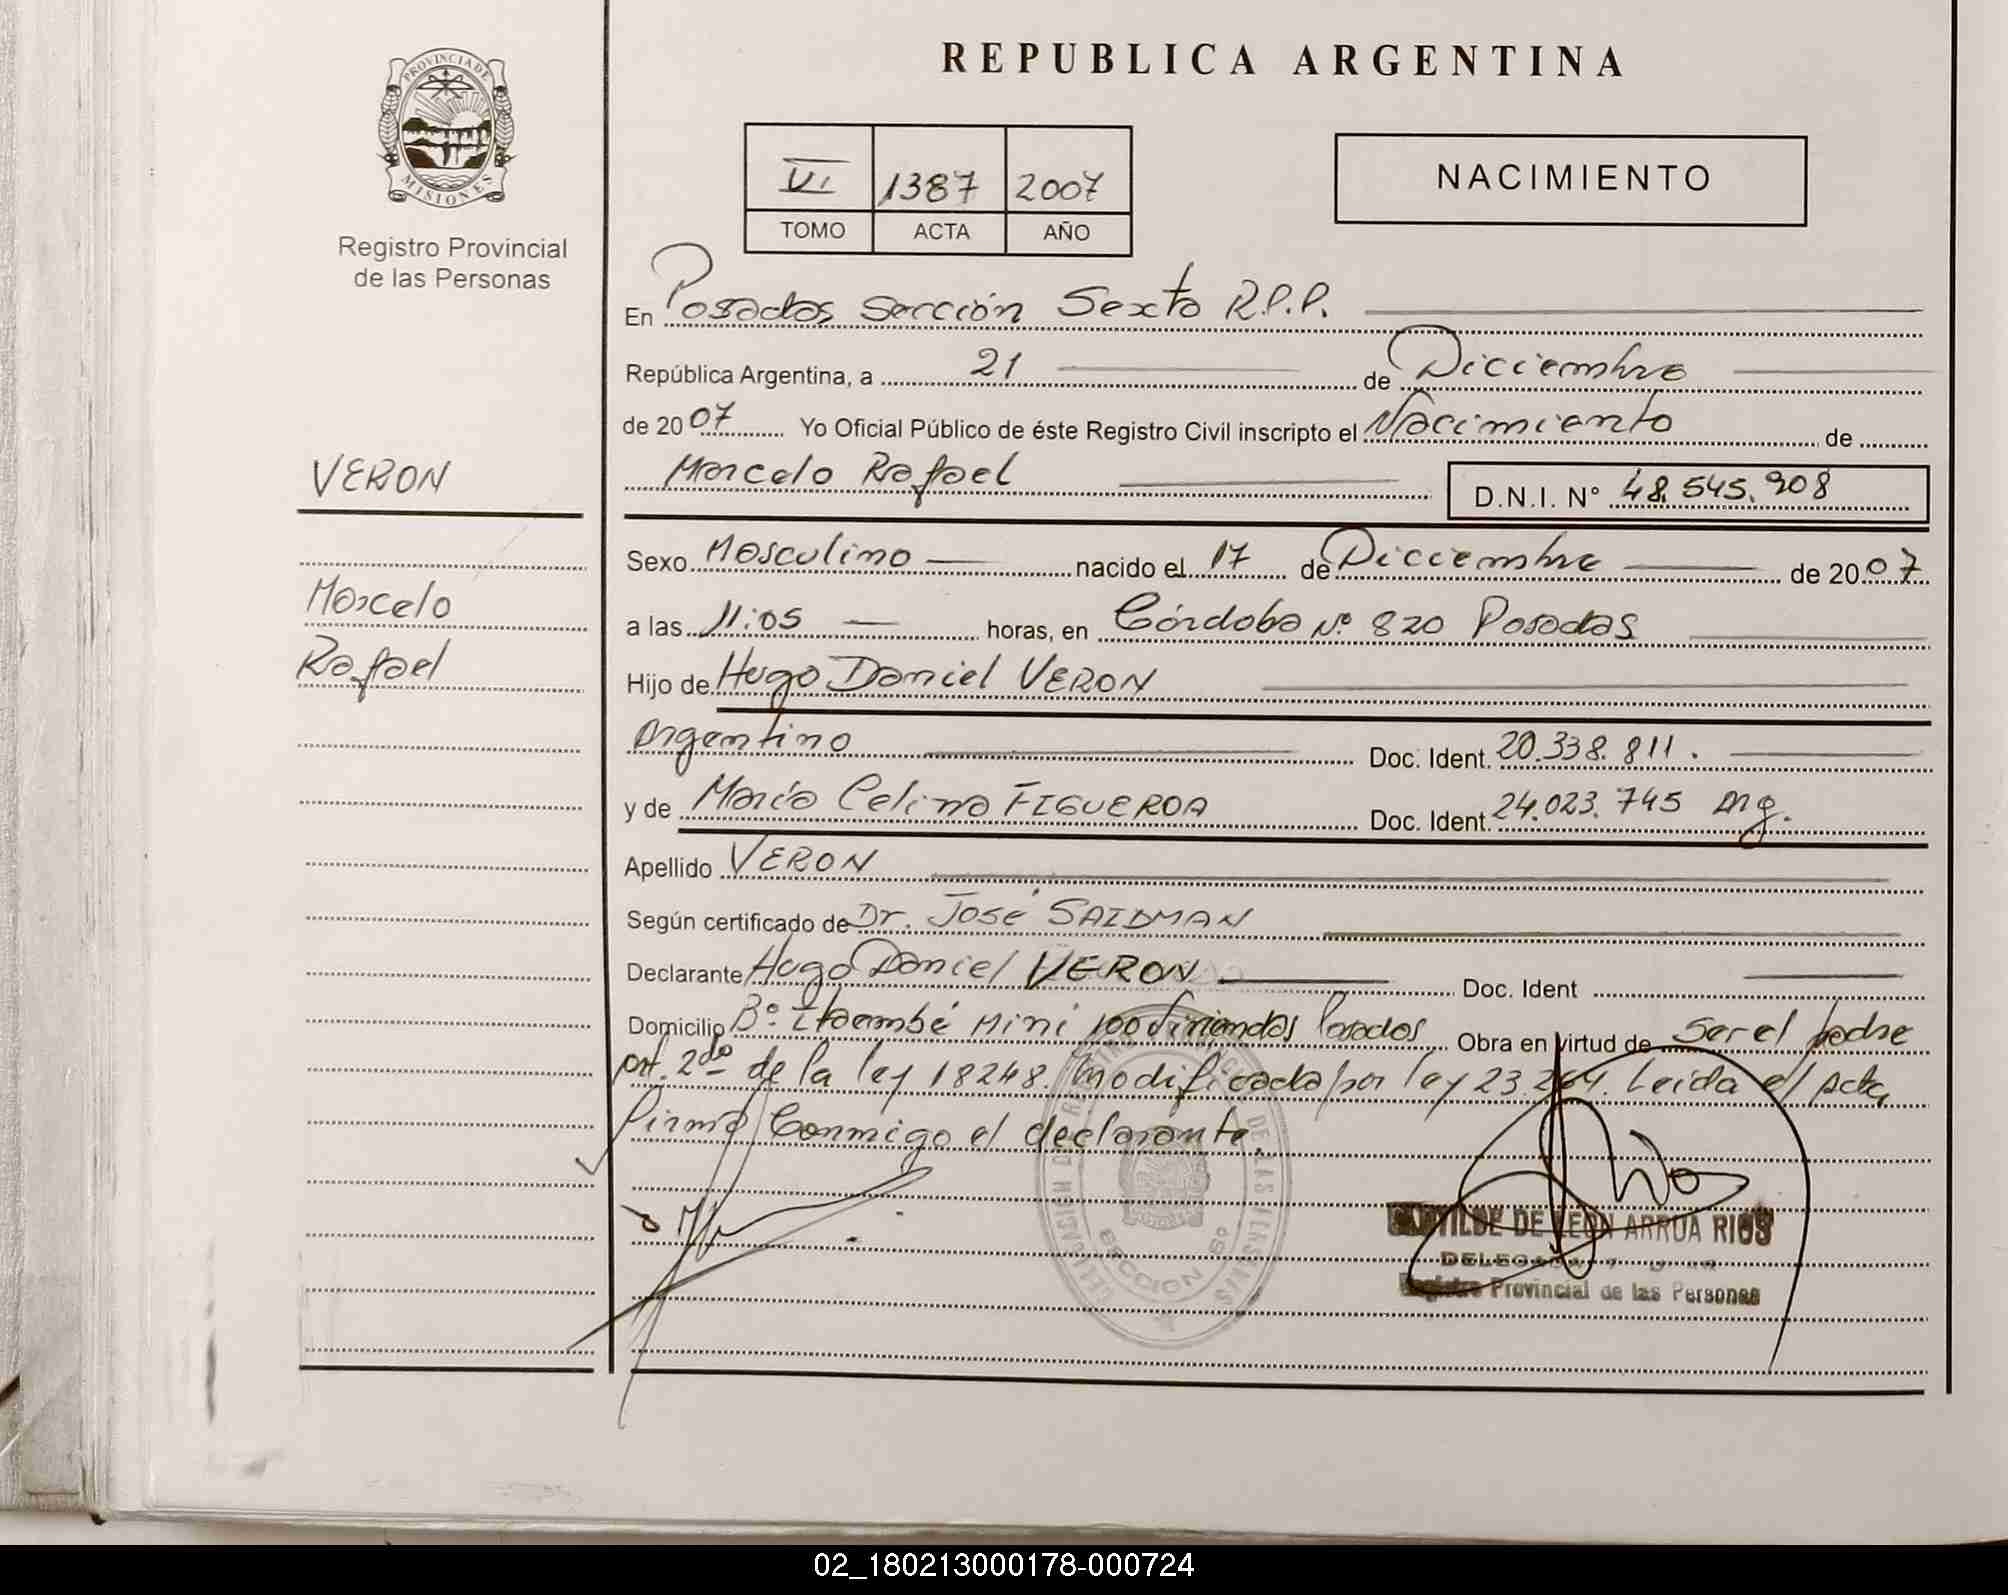 REPUBLICA ARGENTINA
PROVINCIA DE MISIONES
Registro Provincial
de las Personas
VI 1387 2007
TOMO ACTA AÑO
NACIMIENTO
En Posadas Sección Sexta R.P.P.
República Argentina, a 21 de Diciembre
de 2007 Yo Oficial Público de éste Registro Civil inscripto el Nacimiento de
Marcelo Rafael D.N.I. N° 48.545.908
VERON
Marcelo
Rafael
Sexo Masculino nacido el 17 de Diciembre de 2007
a las 11:05 horas, en Córdoba Nº 820 Posadas
Hijo de Hugo Daniel VERON
Argentino Doc. Ident. 20.338.811.
y de María Celina FIGUEROA Doc. Ident. 24.023.745 Arg.
Apellido VERON
Según certificado de Dr. José SAIDMAN
Declarante Hugo Daniel VERON Doc. Ident
Domicilio Bº Itaembé Mini 100 Viviendas Posadas Obra en virtud de Ser el padre
art. 2do de la ley 18248. Modificada por ley 23.264. Leída el acta,
Firma Conmigo el declarante
DE LEON ARRUA RIOS
Registro Provincial de las Personas
SECCION 6º
02_180213000178-000724